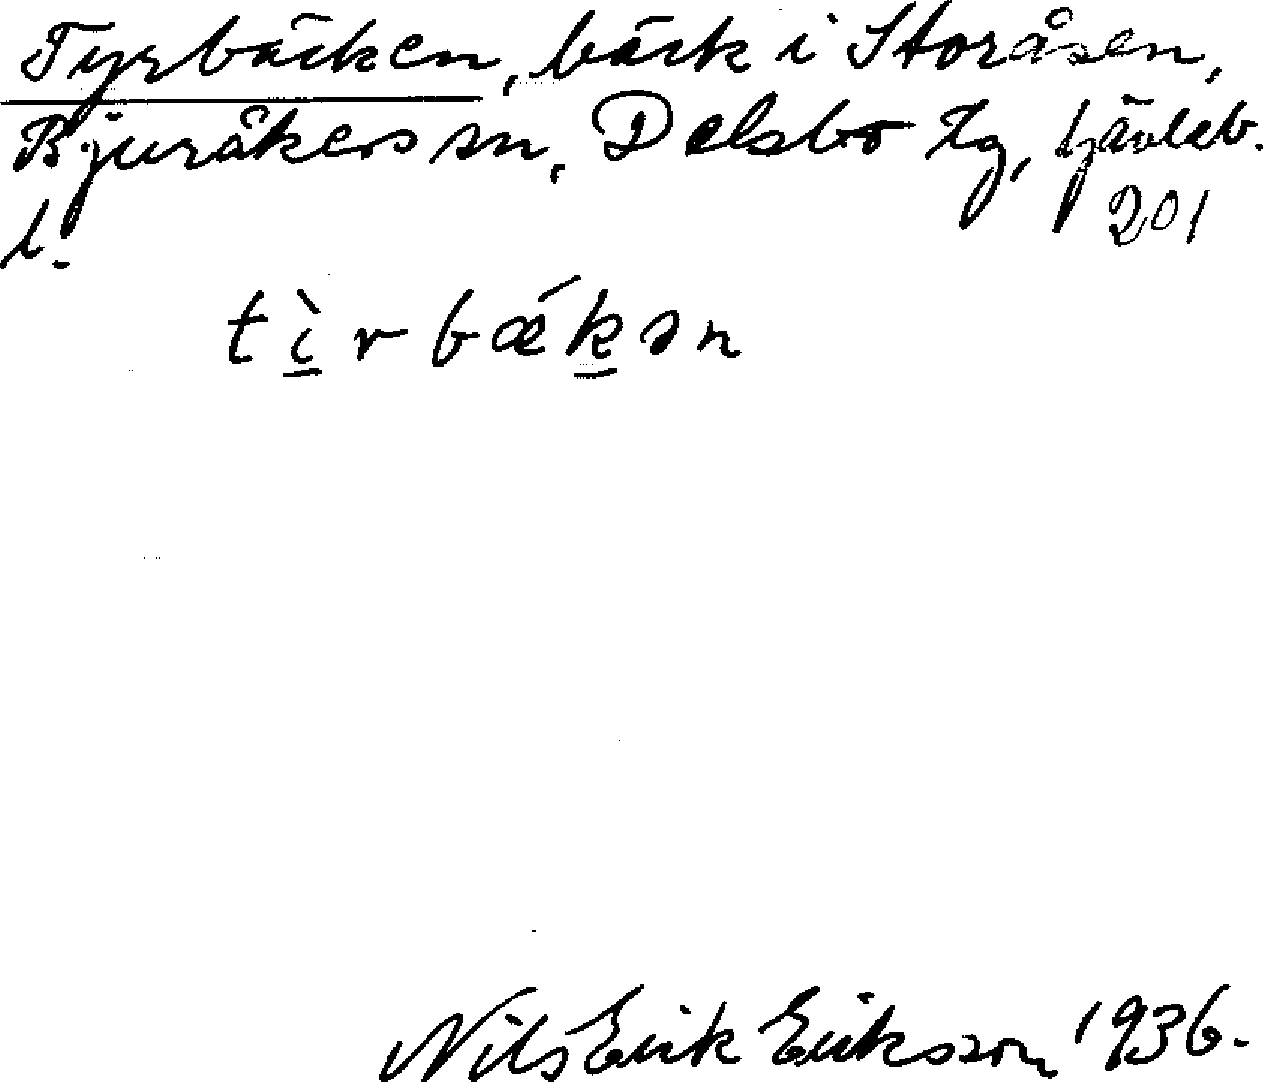 Tyrbäcken, bäck i Storåsen,
Bjuråkers sn, Delsbo tg, Gävleb.
l.
201
tìrbǽkən
Nils Erik Eriksson 1936.